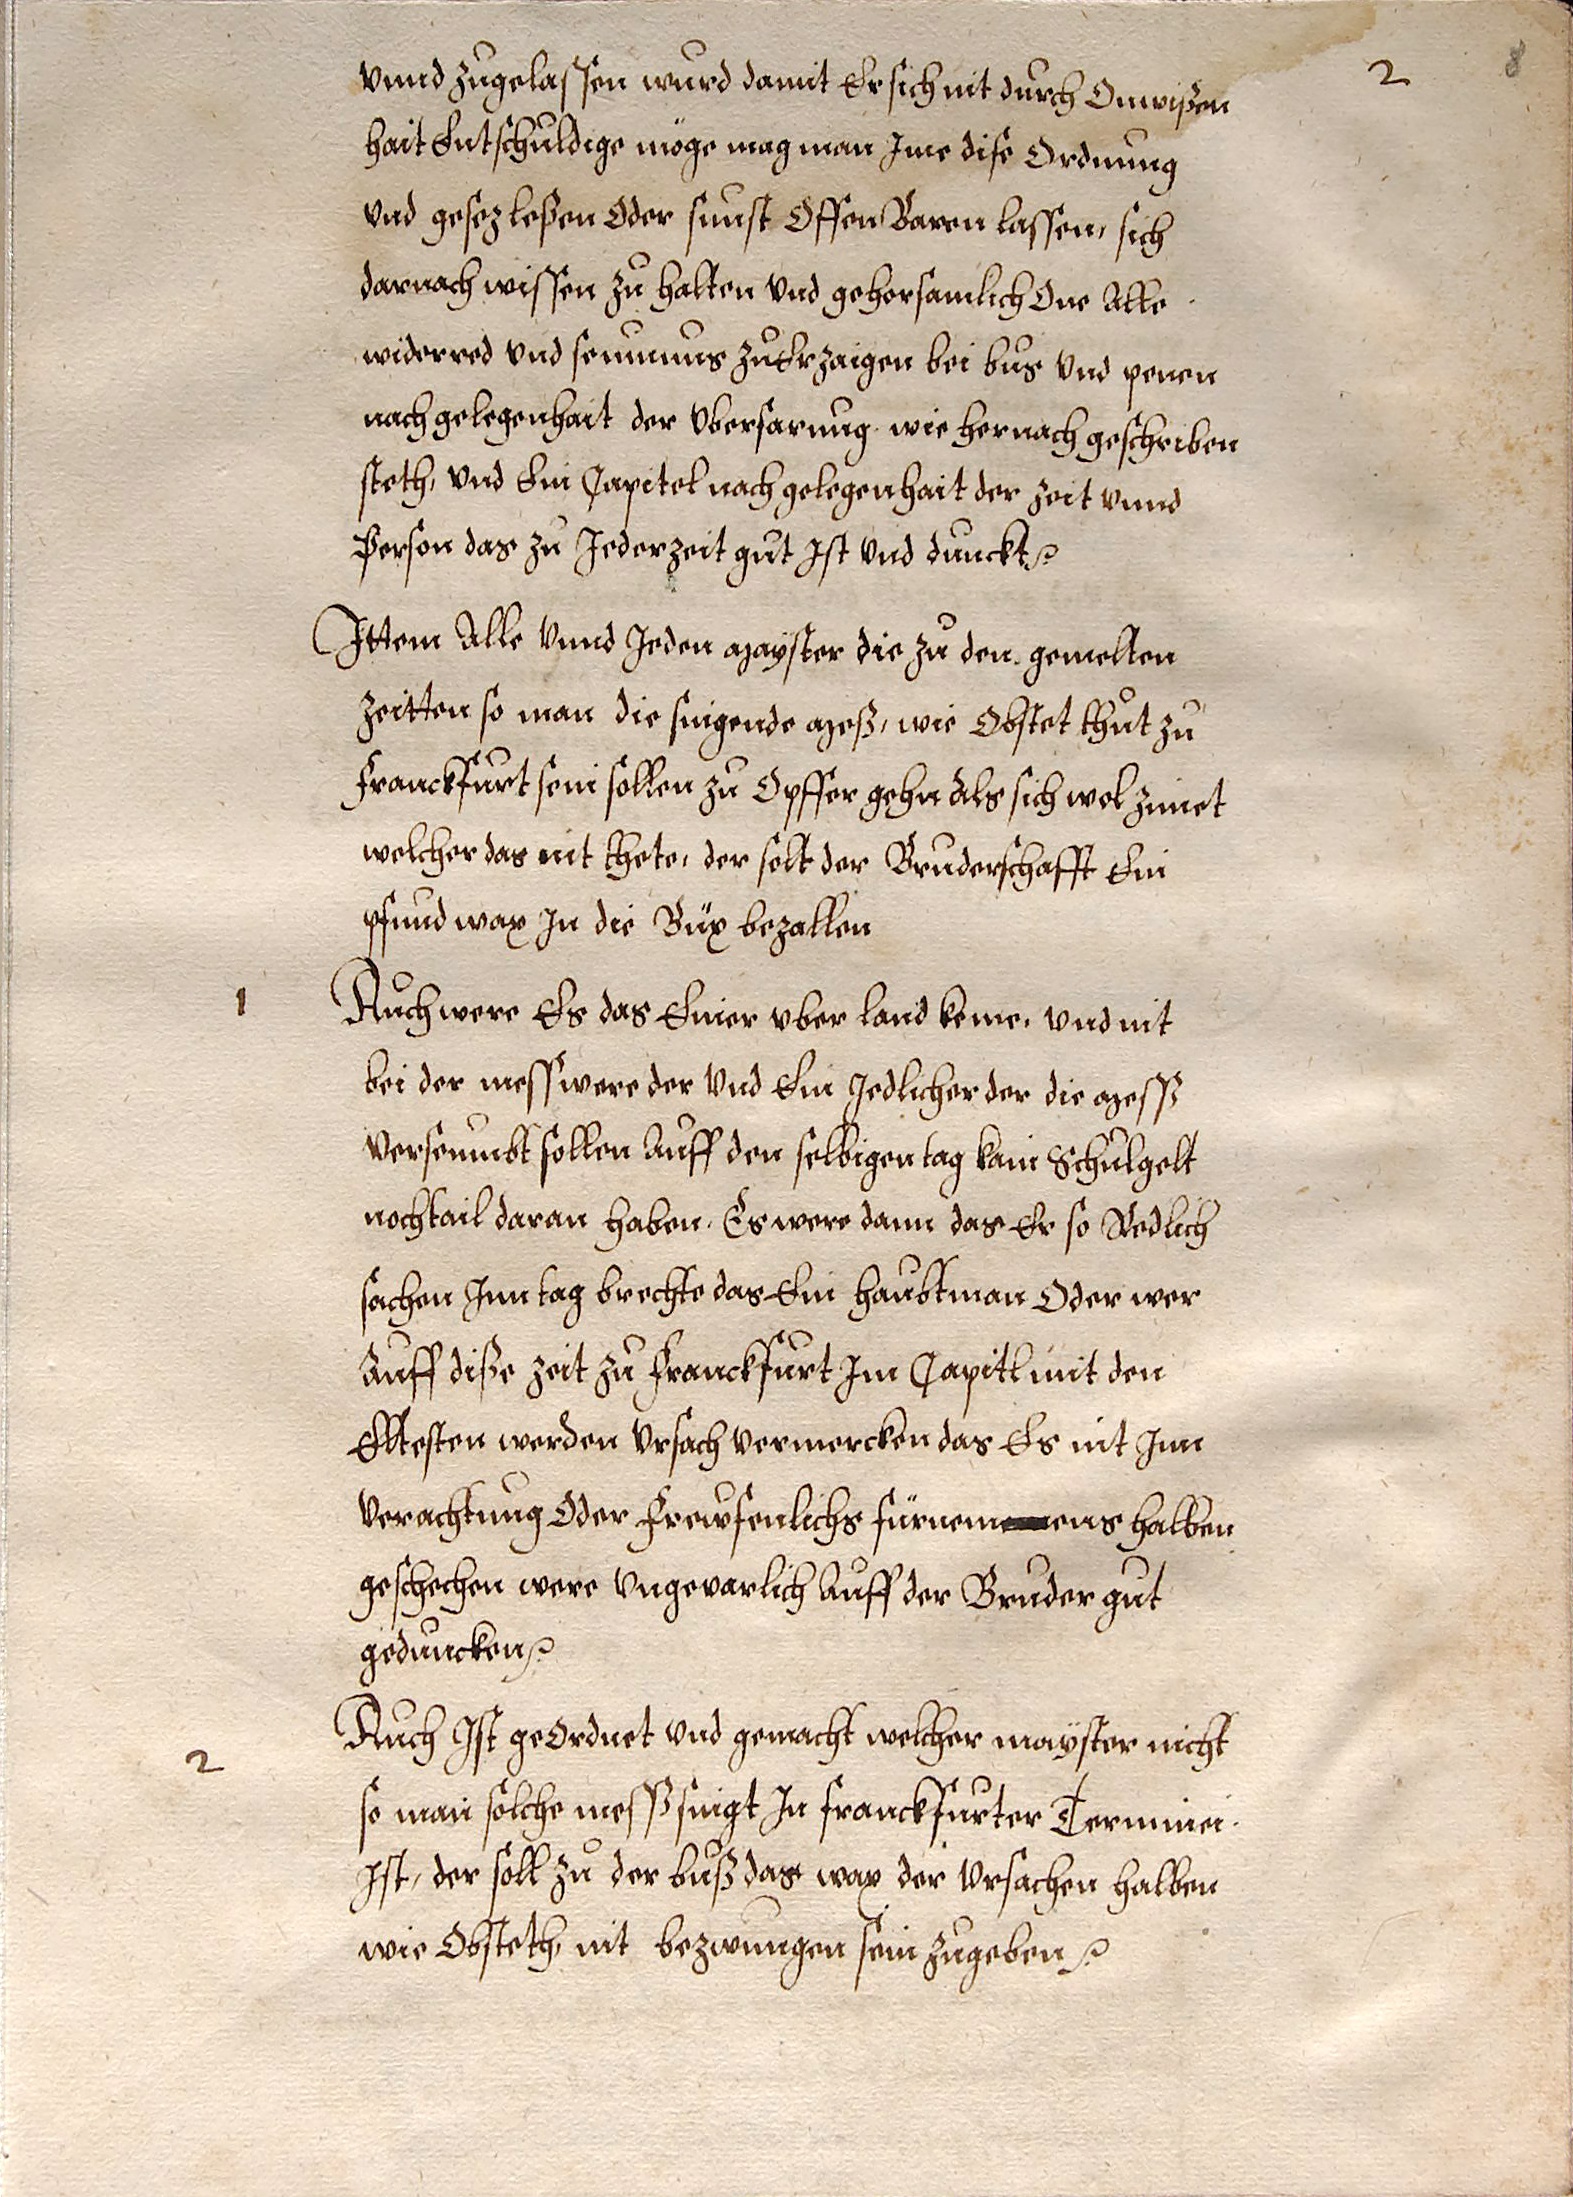 2
8
vnnd zugelassen wurd damit Er sich nit durch Onwißen
hait Entschuldige möge mag man Jme dise Ordnung
vnd gesez leßen Oder sunst Offen Baren lassen, sich
darnach wissen zu halten vnd gehorsamlich One Alle
widerred vnd seumnus zuErzaigen bei bus vnd penen
nach gelegenhait der vberfarung wie hernach geschriben
steth, vnd Ein Capitel nach gelegenhait der zeit vnnd
Person das zu Jederzeit gut Jst vnd dunckt
Jttem Alle vnnd Jeden Mayster die zu den gemelten
zeitten so man die singende Meß, wie Obstet thut zu
Franckfurt sein sollen zu Opffer gehn Als sich wol zimet
welcher das nit thete, der solt der Bruderschafft Ein
pfund wax Jn die Büx bezallen
1
Auch were Es das Einer vber land keme, vnd nit
bei der mess were der vnd Ein Jedlicher der die Mess
verseumbt sollen Auff den selbigen tag kain Schulgelt
noch tail daran haben. Es were dann das Er so Redlich
sachen Jnn tag brechte das Ein haubtman Oder wer
Auff diße zeit zu Franckfurt Jm Capitl mit den
Eltesten werden vrsach vermercken das Es nit Jnn
verachtung Oder Frewfenlichs fürnemens halben
geschechen were vngevarlich Auff der Bruder gut
geduncken
2
Auch Jst geOrdnet vnd gemacht welcher mayster nicht
so man solche mess singt Jn franckfurter Terminei
Jst, der soll zu der buß das wax der vrsachen halben
wie Obsteth, nit bezwungen sein zugeben